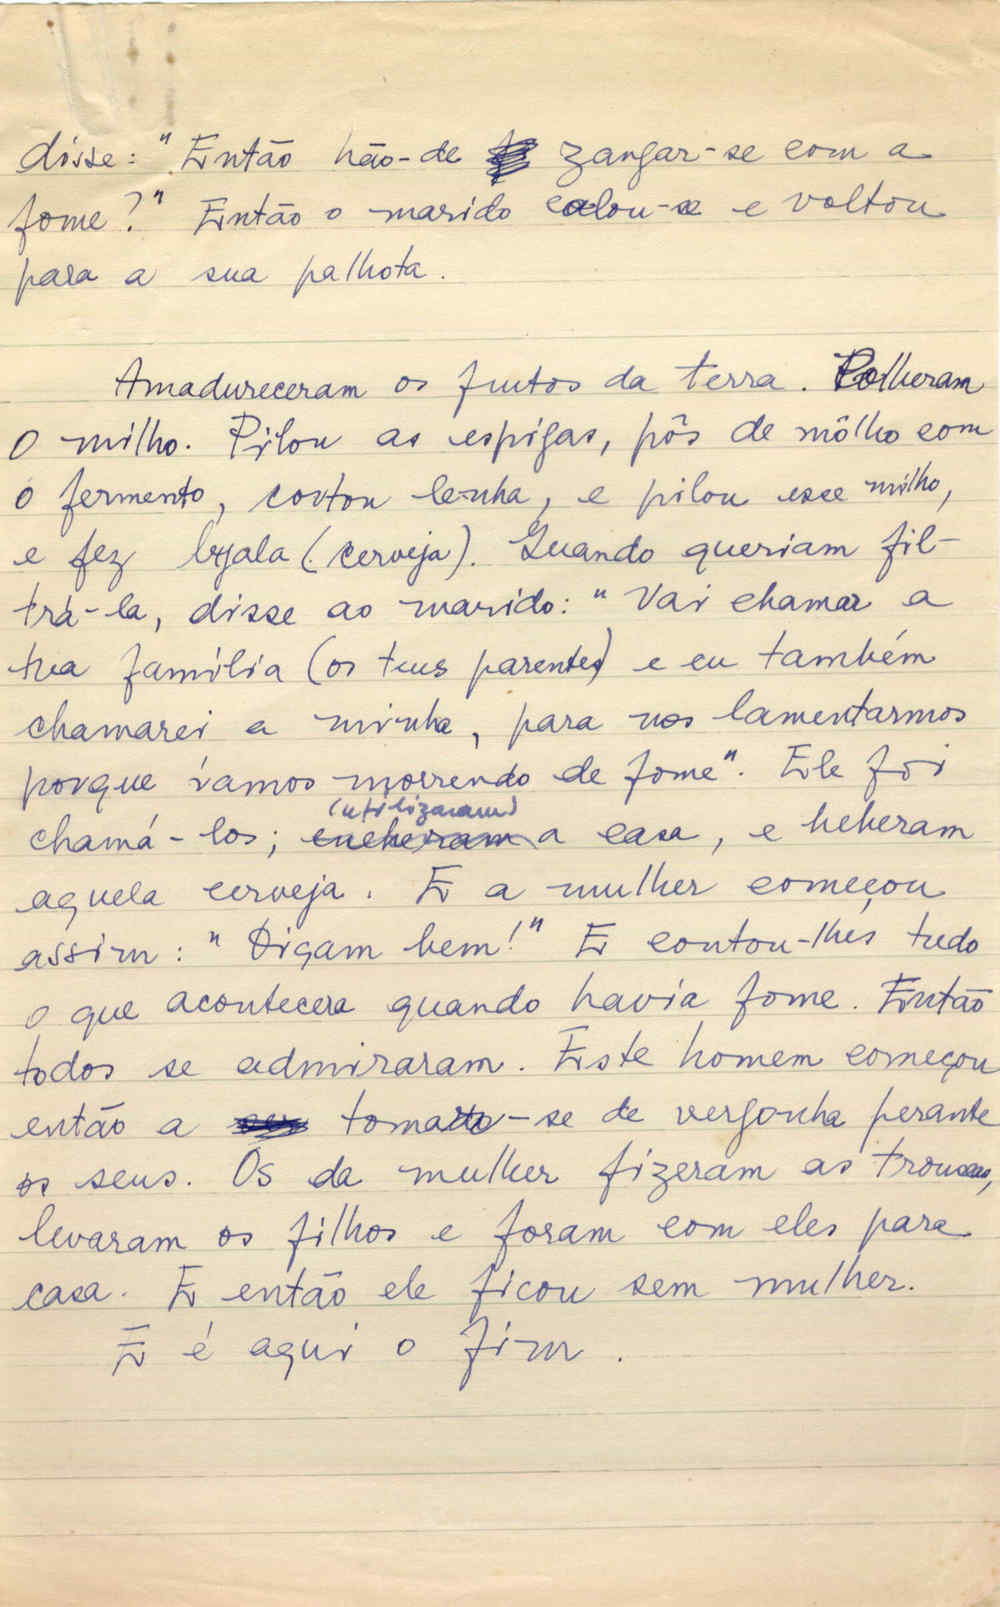 disse: "Então hão-de zangar-se com a
fome?" Então o marido calou-se e voltou
para a sua palhota.
Amadureceram os frutos da terra. Colheram
o milho. Pilou as espigas, pôs de môlho com
o fermento, cortou lenha, e pilou esse milho,
e fez byala (cerveja). Quando queriam fil-
trá-la, disse ao marido: "Vai chamar a
tua família (os teus parentes) e eu também
chamarei a minha, para nos lamentarmos
porque íamos morrendo de fome". Ele foi
(utilizaram)
chamá-los; encheram a casa, e beberam
aquela cerveja. E a mulher começou
assim: "Digam bem!" E contou-lhes tudo
o que acontecera quando havia fome. Então
todos se admiraram. Este homem começou
então a tomar-se de vergonha perante
os seus. Os da mulher fizeram as trouxas,
levaram os filhos e foram com eles para
casa. E então ele ficou sem mulher.
E é aqui o fim.